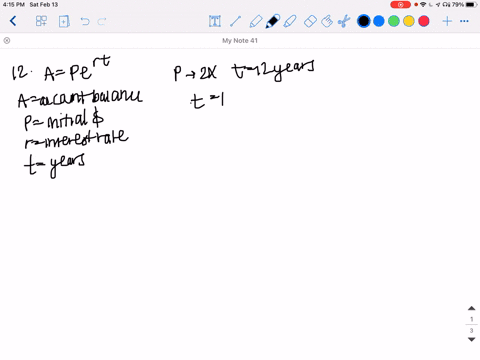 4:15 PM Sat Feb 13
79%
My Note 41
12. A = Pe^rt
A = account balance
P = initial $
r = interest rate
t = years
P → 2X t = 12 years
t = 1
1
3